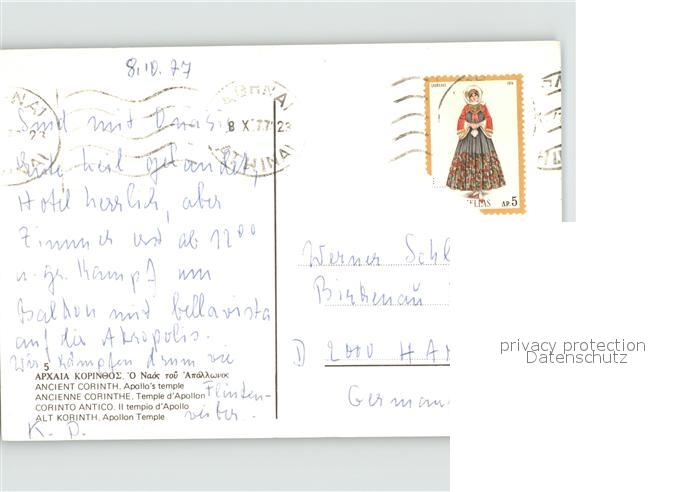 8.10.77
Sind mit Onassis
Erde heil gelandet,
Hotel herrlich, aber
Zimmer erst ab 12⁰⁰
u. gr. Kampf um
Balkon mit bellavista
auf die Akropolis.
Wir kämpfen drum wie
Flinten-
weiber.
K. D.
5
ΑΡΧΑΙΑ ΚΟΡΙΝΘΟΣ, Ὁ Ναὸς τοῦ Ἀπόλλωνος
ANCIENT CORINTH, Apollo's temple
ANCIENNE CORINTHE, Temple d'Apollon
CORINTO ANTICO, Il tempio d'Apollo
ALT KORINTH, Apollon Temple
ΑΘΗΝΑΙ
8 X 77 23
ATHINAI
NAI
23
NAI
ΕΛLAS ΔΡ. 5
Werner Schl
Birkenau
D 2000 HA
German
privacy protection
Datenschutz